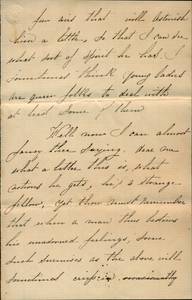 few and that will astonish
him a little, so that I can see
what sort of spirit he has. I
sometimes think young ladies
are queer folks to deal with
at least some of them
Well now I can almost
fancy thee saying. dear me
what a letter this is, what
notions he gets, he's a strange
fellow, yet thou must remember
that when a man thus
his unadorned feelings, some
such surmises as the above with
sometimes occasionally